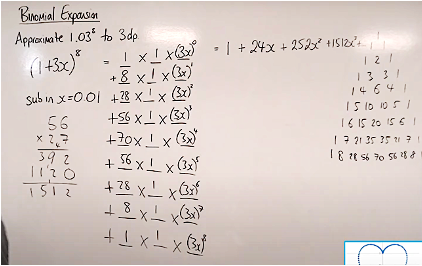 Binomial Expansion
Approximate 1.03⁸ to 3dp
(1+3x)⁸ = 1 × 1 × (3x)⁰ = 1 + 24x + 252x² + 1512x³ +
+ 8 × 1 × (3x)¹
sub in x=0.01 + 28 × 1 × (3x)²
+ 56 × 1 × (3x)³
+ 70 × 1 × (3x)⁴
+ 56 × 1 × (3x)⁵
+ 28 × 1 × (3x)⁶
+ 8 × 1 × (3x)⁷
+ 1 × 1 × (3x)⁸
56
× 27
392
1120
1512
1 1
1 2 1
1 3 3 1
1 4 6 4 1
1 5 10 10 5 1
1 6 15 20 15 6 1
1 7 21 35 35 21 7 1
1 8 28 56 70 56 28 8